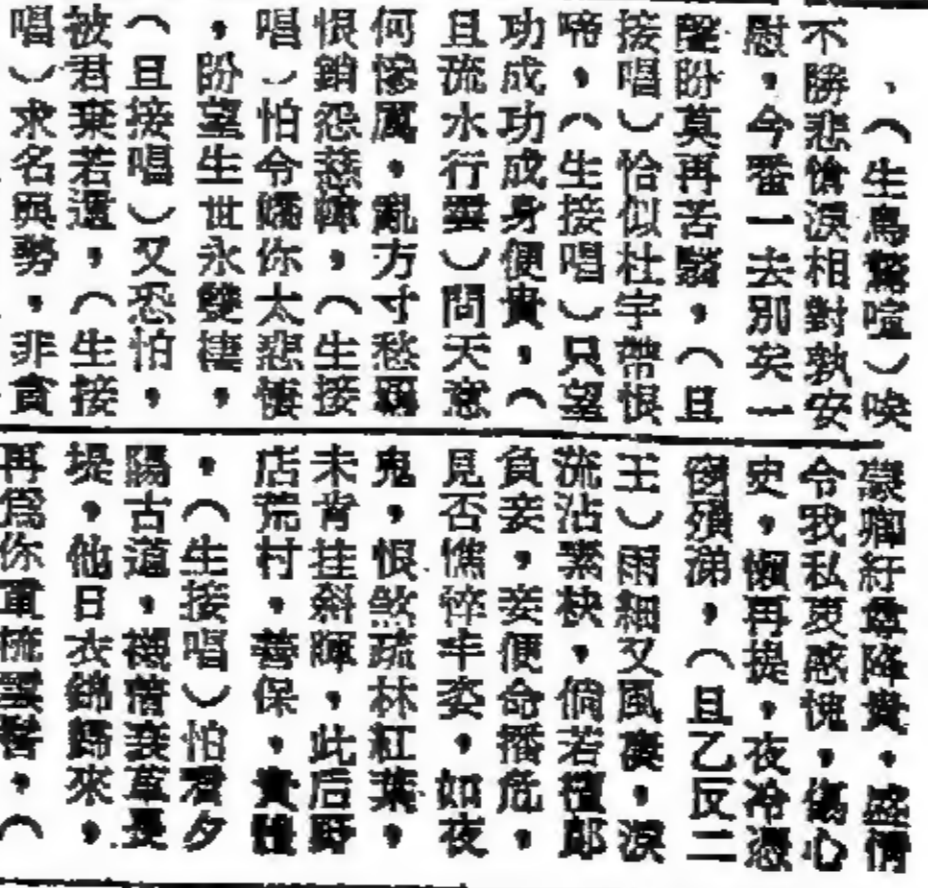 ，（生鳥驚喧）喚
不勝悲愴淚相對孰安
慰，今番一去別矣一
朢盼莫再苦，（且
接唱）恰似杜宇帶恨
啼，（生接唱）只望
功成功成身便貴，（
且流水行雲）問天意
何慘厲，亂方寸愁
恨銷怨，（生接
唱）怕令嬌你太悲悽
，盼望生世永雙棲，
（且接唱）又恐怕，
被君棄若遺，（生接
唱）求名與勢，非貪
蒙卿紆尊降貴，盛情
令我私衷感愧，傷心
史，懶再提，夜冷憑
涕，（且乙反二
王）雨細又風淒，淚
流沾袂，倘若檀郎
負妾，妾便命播危，
見否憔悴丰姿，如夜
鬼，恨煞疏林紅葉，
未肯挂斜暉，此后野
店荒村，善保貴體
，（生接唱）怕君夕
陽古道，衰草長
堤，他日衣錦歸來，
再爲你重梳雲髻，（